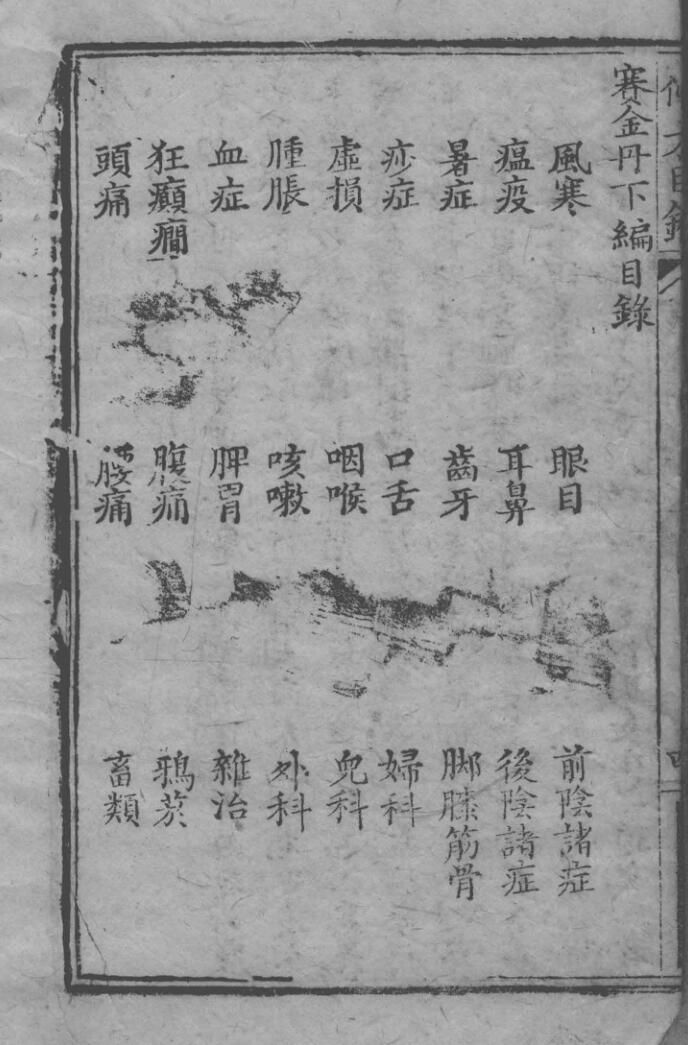 賽金丹下編目錄
風寒
瘟疫
暑症
痧症
虛損
腫脹
血症
狂癲癇
頭痛
眼目
耳鼻
齒牙
口舌
咽喉
咳嗽
脾胃
腹痛
痛
前陰諸症
後陰諸症
脚膝筋骨
婦科
兒科
外科
雜治
鴉菸
畜類